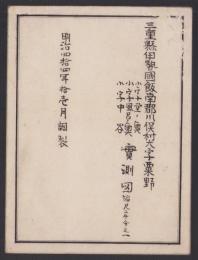 三重縣伊勢國飯南郡川俣村大字粟野
小字堂ノ奥
小字風呂ノ奥
小字中谷
實測図 縮尺六百分之一
明治四拾四年拾壱月調製